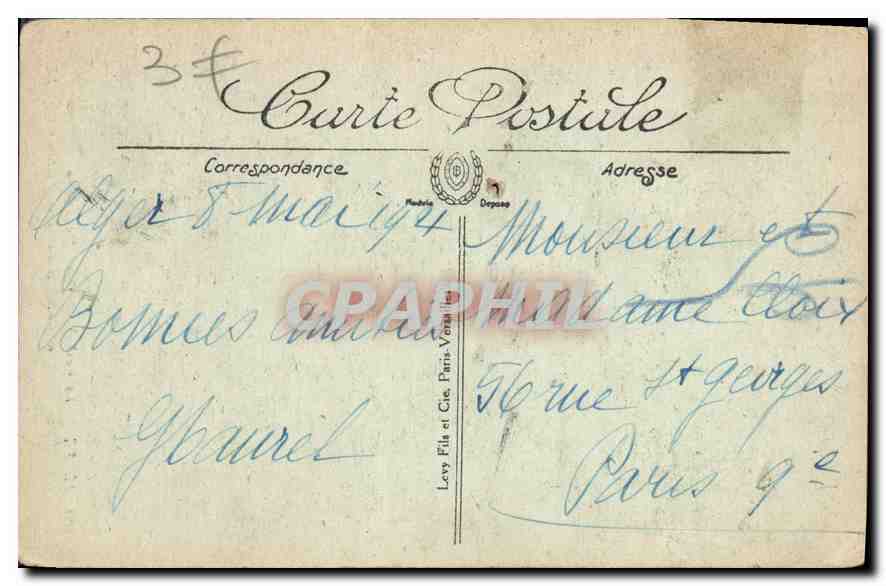 3 €
Carte Postale
Correspondance
Adresse
Modele Depose
Alger 8 mai 1924
Bonnes amitiés
Monsieur et
Madame Cloix
56 rue St Georges
Paris 9e
Levy Fils et Cie, Paris-Versailles
CPAPHIL